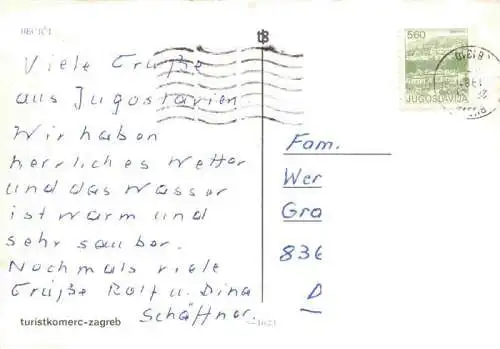 BEČIĆI
Viele Grüße
aus Jugoslavien.
Wir haben
herrliches Wetter
und das Wasser
ist warm und
sehr sauber.
Nochmals viele
Grüße Rolf u. Dina
Schäffner.
turistkomerc-zagreb
5,60
JUGOSLAVIJA
Fam.
Wer
Gra
836
D